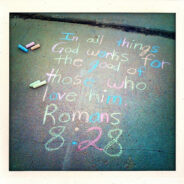 In all things
God works for
the good of
those who
love him.
Romans
8:28